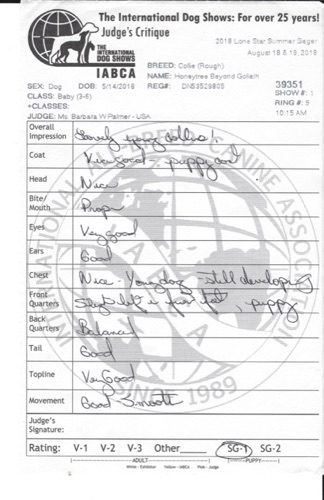 The International Dog Shows: For over 25 years!
Judge's Critique
2018 Lone Star Summer Sieger
August 18 & 19, 2018
THE INTERNATIONAL DOG SHOWS
IABCA
BREED: Collie (Rough)
NAME: Honeytree Beyond Goliath
SEX: Dog DOB: 5/14/2018 REG#: DN53529805 39351
CLASS: Baby (3-6) SHOW #: 1
+CLASSES: RING #: 5
JUDGE: Ms. Barbara W Palmer - USA 10:15 AM
Overall Impression Lovely young collie!
Coat Nice coat - puppy coat
Head Nice
Bite/ Mouth Proper
Eyes Very good
Ears Good
Chest Nice - Young dog - still developing
Front Quarters in , puppy
Back Quarters Balanced
Tail Good
Topline Very Good
Movement Good Smooth
Judge's Signature:
Rating: V-1 V-2 V-3 Other SG-1 SG-2
ADULT PUPPY
White - Exhibitor Yellow - IABCA Pink - Judge
INTERNATIONAL ALL BREED CANINE ASSOCIATION
SINCE 1989